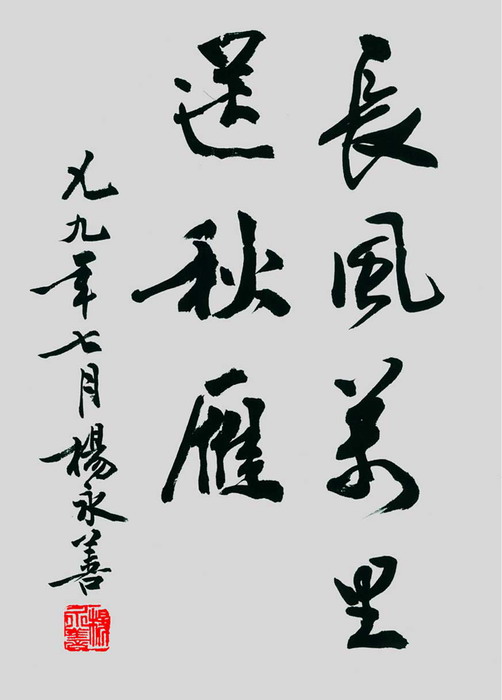 長風萬里
送秋雁
九九年七月楊永善
楊永善